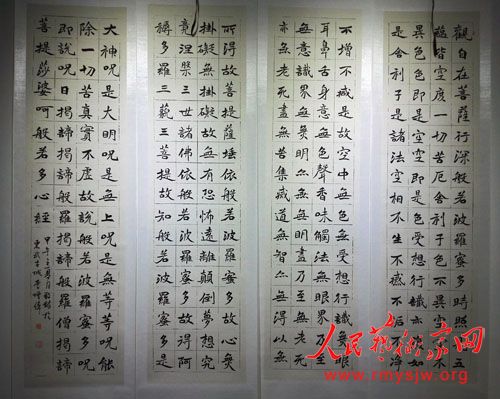 觀自在菩薩行深般若波羅蜜多時照見五
蘊皆空度一切苦厄舍利子色不異空空不
異色色即是空空即是色受想行識亦復如
是舍利子是諸法空相不生不滅不垢不淨
不增不減是故空中無色無受想行識無眼
耳鼻舌身意無色聲香味觸法無眼界乃至
無意識界無無明亦無無明盡乃至無老死
亦無老死盡無苦集滅道無智亦無得以無
所得故菩提薩埵依般若波羅蜜多故心無
掛礙無掛礙故無有恐怖遠離顛倒夢想究
竟涅槃三世諸佛依般若波羅蜜多故得阿
耨多羅三藐三菩提故知般若波羅蜜多是
大神咒是大明咒是無上咒是無等等咒能
除一切苦真實不虛故說般若波羅蜜多咒
即說咒曰揭諦揭諦般羅揭諦般羅僧揭諦
菩提莎婆呵般若多心經
甲午
人民藝術家网
www.rmysjw.org